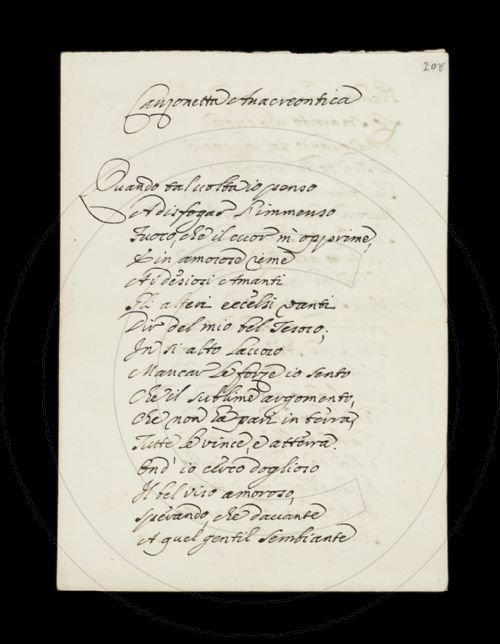 208
Canzonetta Anacreontica
Quando tal volta io penso
A disfogar l'immenso
Fuoco, che il cuor m'opprime,
E in amorose rime
Ai desiosi Amanti
Gli alteri eccelsi vanti
Dir del mio bel Tesoro;
In sì alto lavoro
Mancar le forze io sento
Che il sublime argomento,
Che non ha pari in terra,
Tutte le vince, e atterra.
Ond' io cerco doglioso
Il bel viso amoroso,
Sperando, che davante
A quel gentil sembiante